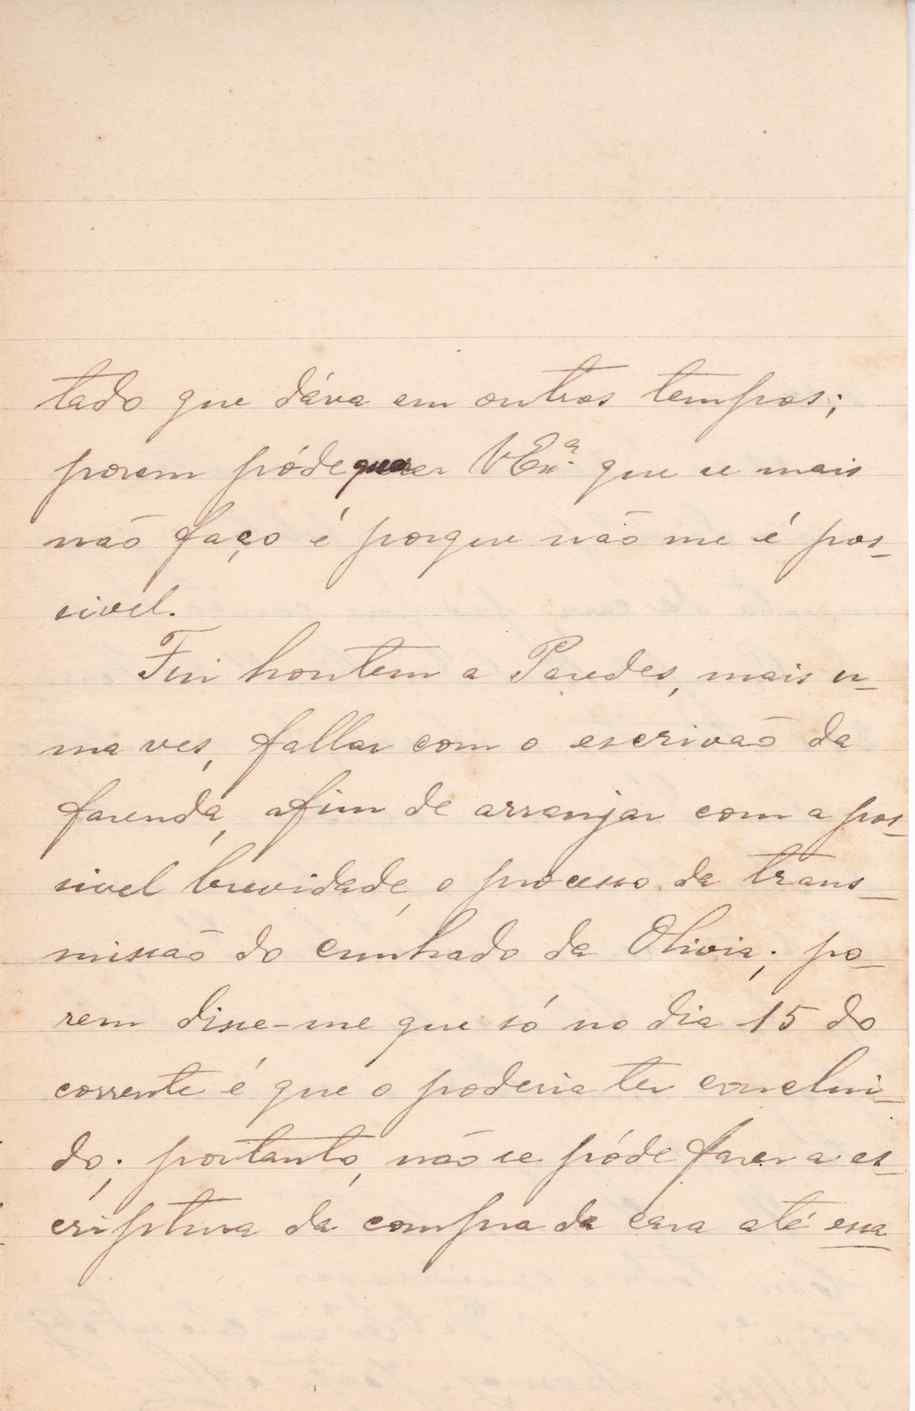 tado que dáva em outros tempos;
porem póde quer VExª. que se mais
não faço é porque não me é pos-
sivel.
Fui hontem a Paredes, mais u-
ma ves, fallar com o escrivão da
fazenda, afim de arranjar com a pos-
sivel brevidade, o processo da trans-
missão do cunhado da Olivia; po-
rem disse-me que só no dia 15 do
corrente é que o poderia ter conclui-
do; portanto, não se póde fazer a es-
criptura da compra da casa até essa